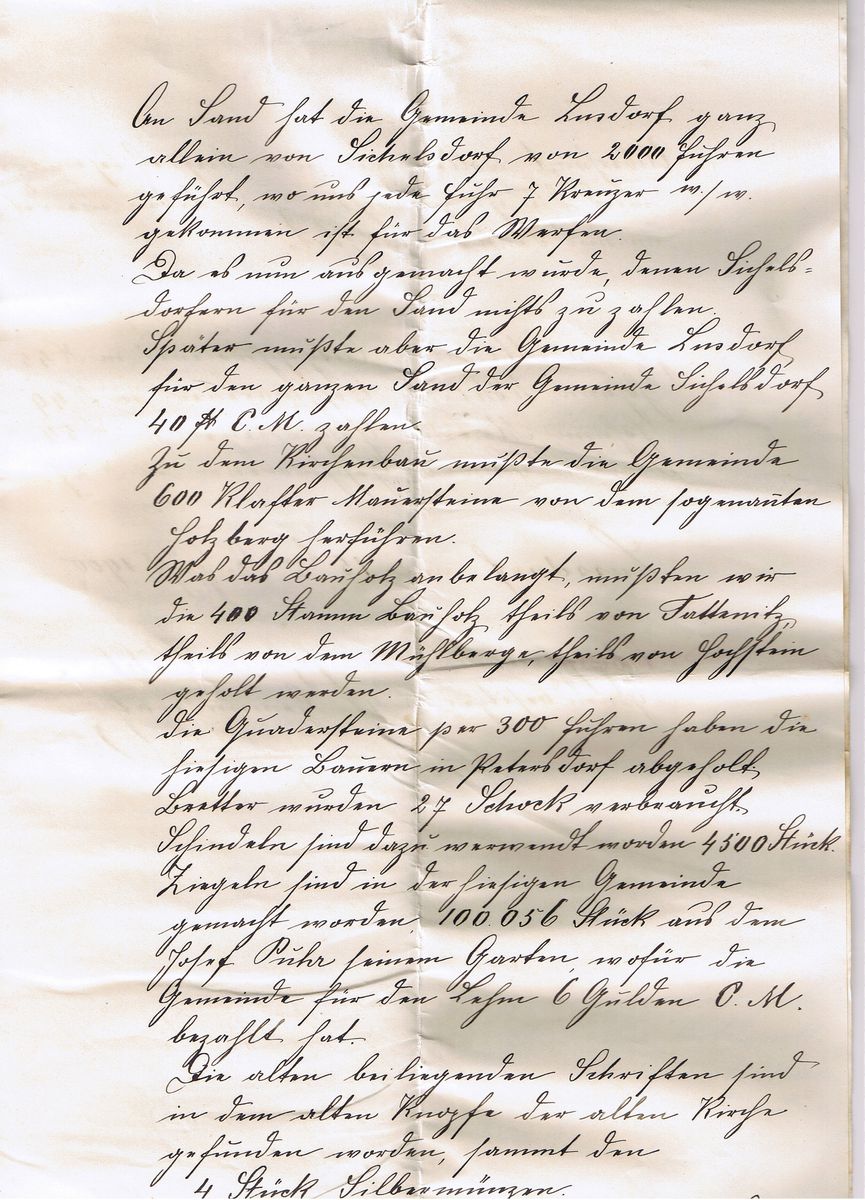 An Sand hat die Gemeinde Lusdorf ganz
allein von Sichelsdorf von 2000 Fuhren
geführt, wo uns jede Fuhr 7 Kreuzer w./w.
gekommen ist für das Werfen.
Da es nun ausgemacht wurde, denen Sichels=
dorfern für den Sand nichts zu zahlen.
Später mußte aber die Gemeinde Lusdorf
für den ganzen Sand der Gemeinde Sichelsdorf
40 fl C. M. zahlen.
Zu dem Kirchenbau mußte die Gemeinde
600 Klafter Mauersteine von dem sogenannten
Holzberg herführen.
Was das Bauholz anbelangt, mußten wir
die 400 Stamm Bauholz theils von Tattenitz,
theils von dem Mühlberge, theils von Hochstein
geholt werden.
Die Quadersteine per 300 Fuhren haben die
hiesigen Bauern in Petersdorf abgeholt.
Bretter wurden 27 Schock verbraucht.
Schindeln sind dazu verwendt worden 4500 Stück.
Ziegeln sind in der hiesigen Gemeinde
gemacht worden, 100.056 Stück aus dem
Josef seinem Garten, wofür die
Gemeinde für den Lehm 6 Gulden C. M.
bezahlt hat.
Die alten beiliegenden Schriften sind
in dem alten Knopfe der alten Kirche
gefunden worden, sammt den
4 Stück Silbermünzen.